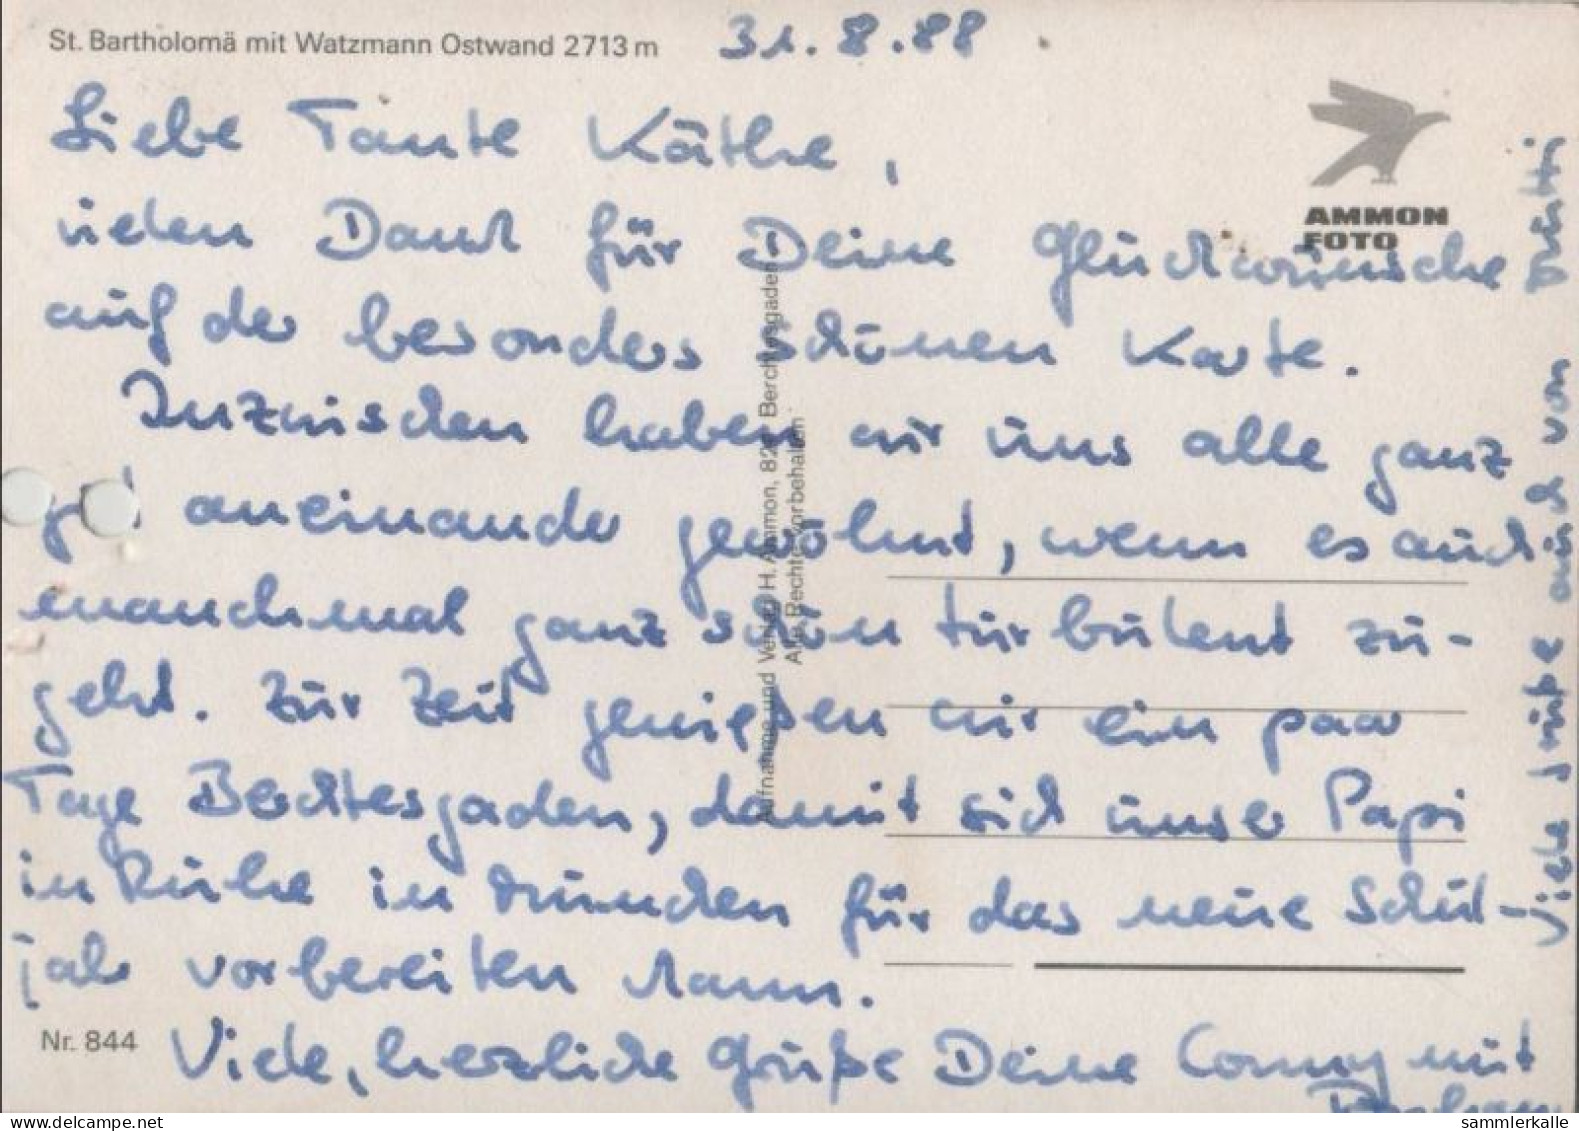 St. Bartholomä mit Watzmann Ostwand 2713 m
31.8.88
AMMON
FOTO
Liebe Tante Käthe,
vielen Dank für Deine Glückwünsche
auf der besonders schönen Karte.
Inzwischen haben wir uns alle ganz
gut aneinander gewöhnt, wenn es auch
manchmal ganz schön turbulent zu-
geht. Zur Zeit genießen wir ein paar
Tage Berchtesgaden, damit sich unser Papi
in Ruhe in München für das neue Schul-
jahr vorbereiten kann.
Viele, herzliche Grüße Deine Conny mit
Viele Grüße auch von
Aufnahme und Verlag H. Ammon, Berchtesgaden
Alle Rechte vorbehalten
Nr. 844
www.delcampe.net
sammlerkalle